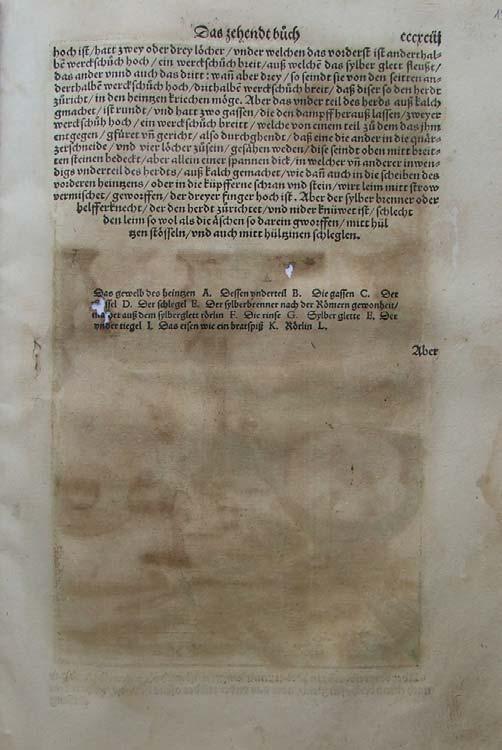 Das zehendt bůch cccxciij
hoch ist/hatt zwey oder drey löcher/vnder welchen das vorderst ist anderthal-
bē werckschůch hoch/ein werckschůch breit/auß welchem das sylber glett fleußt/
das ander vnnd auch das dritt: wañ aber drey/so seindt sie von den seitten an-
derthalbē werckschůch hoch/drithalbē werckschůch breit/daß diser so den herdt
zůricht/in den heintzen kriechen möge. Aber das vnder teil des herds auß kalch
gmachet/ist rundt/vnd hatt zwo gassen/die den dampff herauß lassen/zweyer
werckschůh hoch/ein werckschůch breitt/welche von einem teil zů dem das jhm
entgegen/gfüret vñ gericht/also durchghendt/daß eine die ander in die quåtz-
zerschneide/vnd vier löcher zůsein/gesåhen werden/dise seindt oben mitt breit-
ten steinen bedeckt/aber allein einer spannen dick/in welcher vñ anderer inwen-
digs vnderteil des herdts/auß kalch gmachet/wie dañ auch in die scheiben des
vorderen heintzens/oder in die küpfferne schran vnd stein/wirt leim mitt strow
vermischet/geworffen/der dreyer finger hoch ist. Aber der sylber brenner oder
belfferknecht/der den herdt zůrichtet/vnd nider knüwet ist/schlecht
den leim so wol als die åschen so darein gworffen/mitt hül
tzen stösseln/vnd auch mitt hültzinen schleglen.
Das gewelb des heintzen A. Dessen vnderteil B. Die gassen C. Der
D. Der schlegel E. Der sylberbrenner nach der Römern gewonheit/
auß dem sylberglett rörlin F. Die rinse G. Sylber glette E. Der
vnder tiegel I. Das eisen wie ein bratspiß K. Rörlin L.
Aber